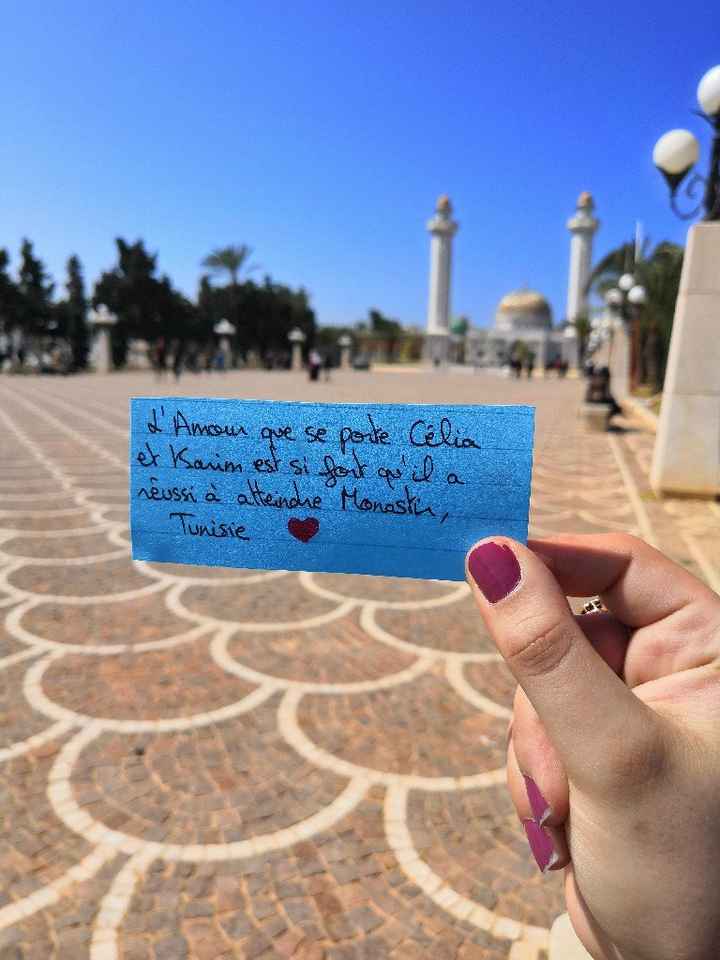 L'Amour que se porte Célia
et Karim est si fort qu'il a
réussi à atteindre Monastir,
Tunisie ♥